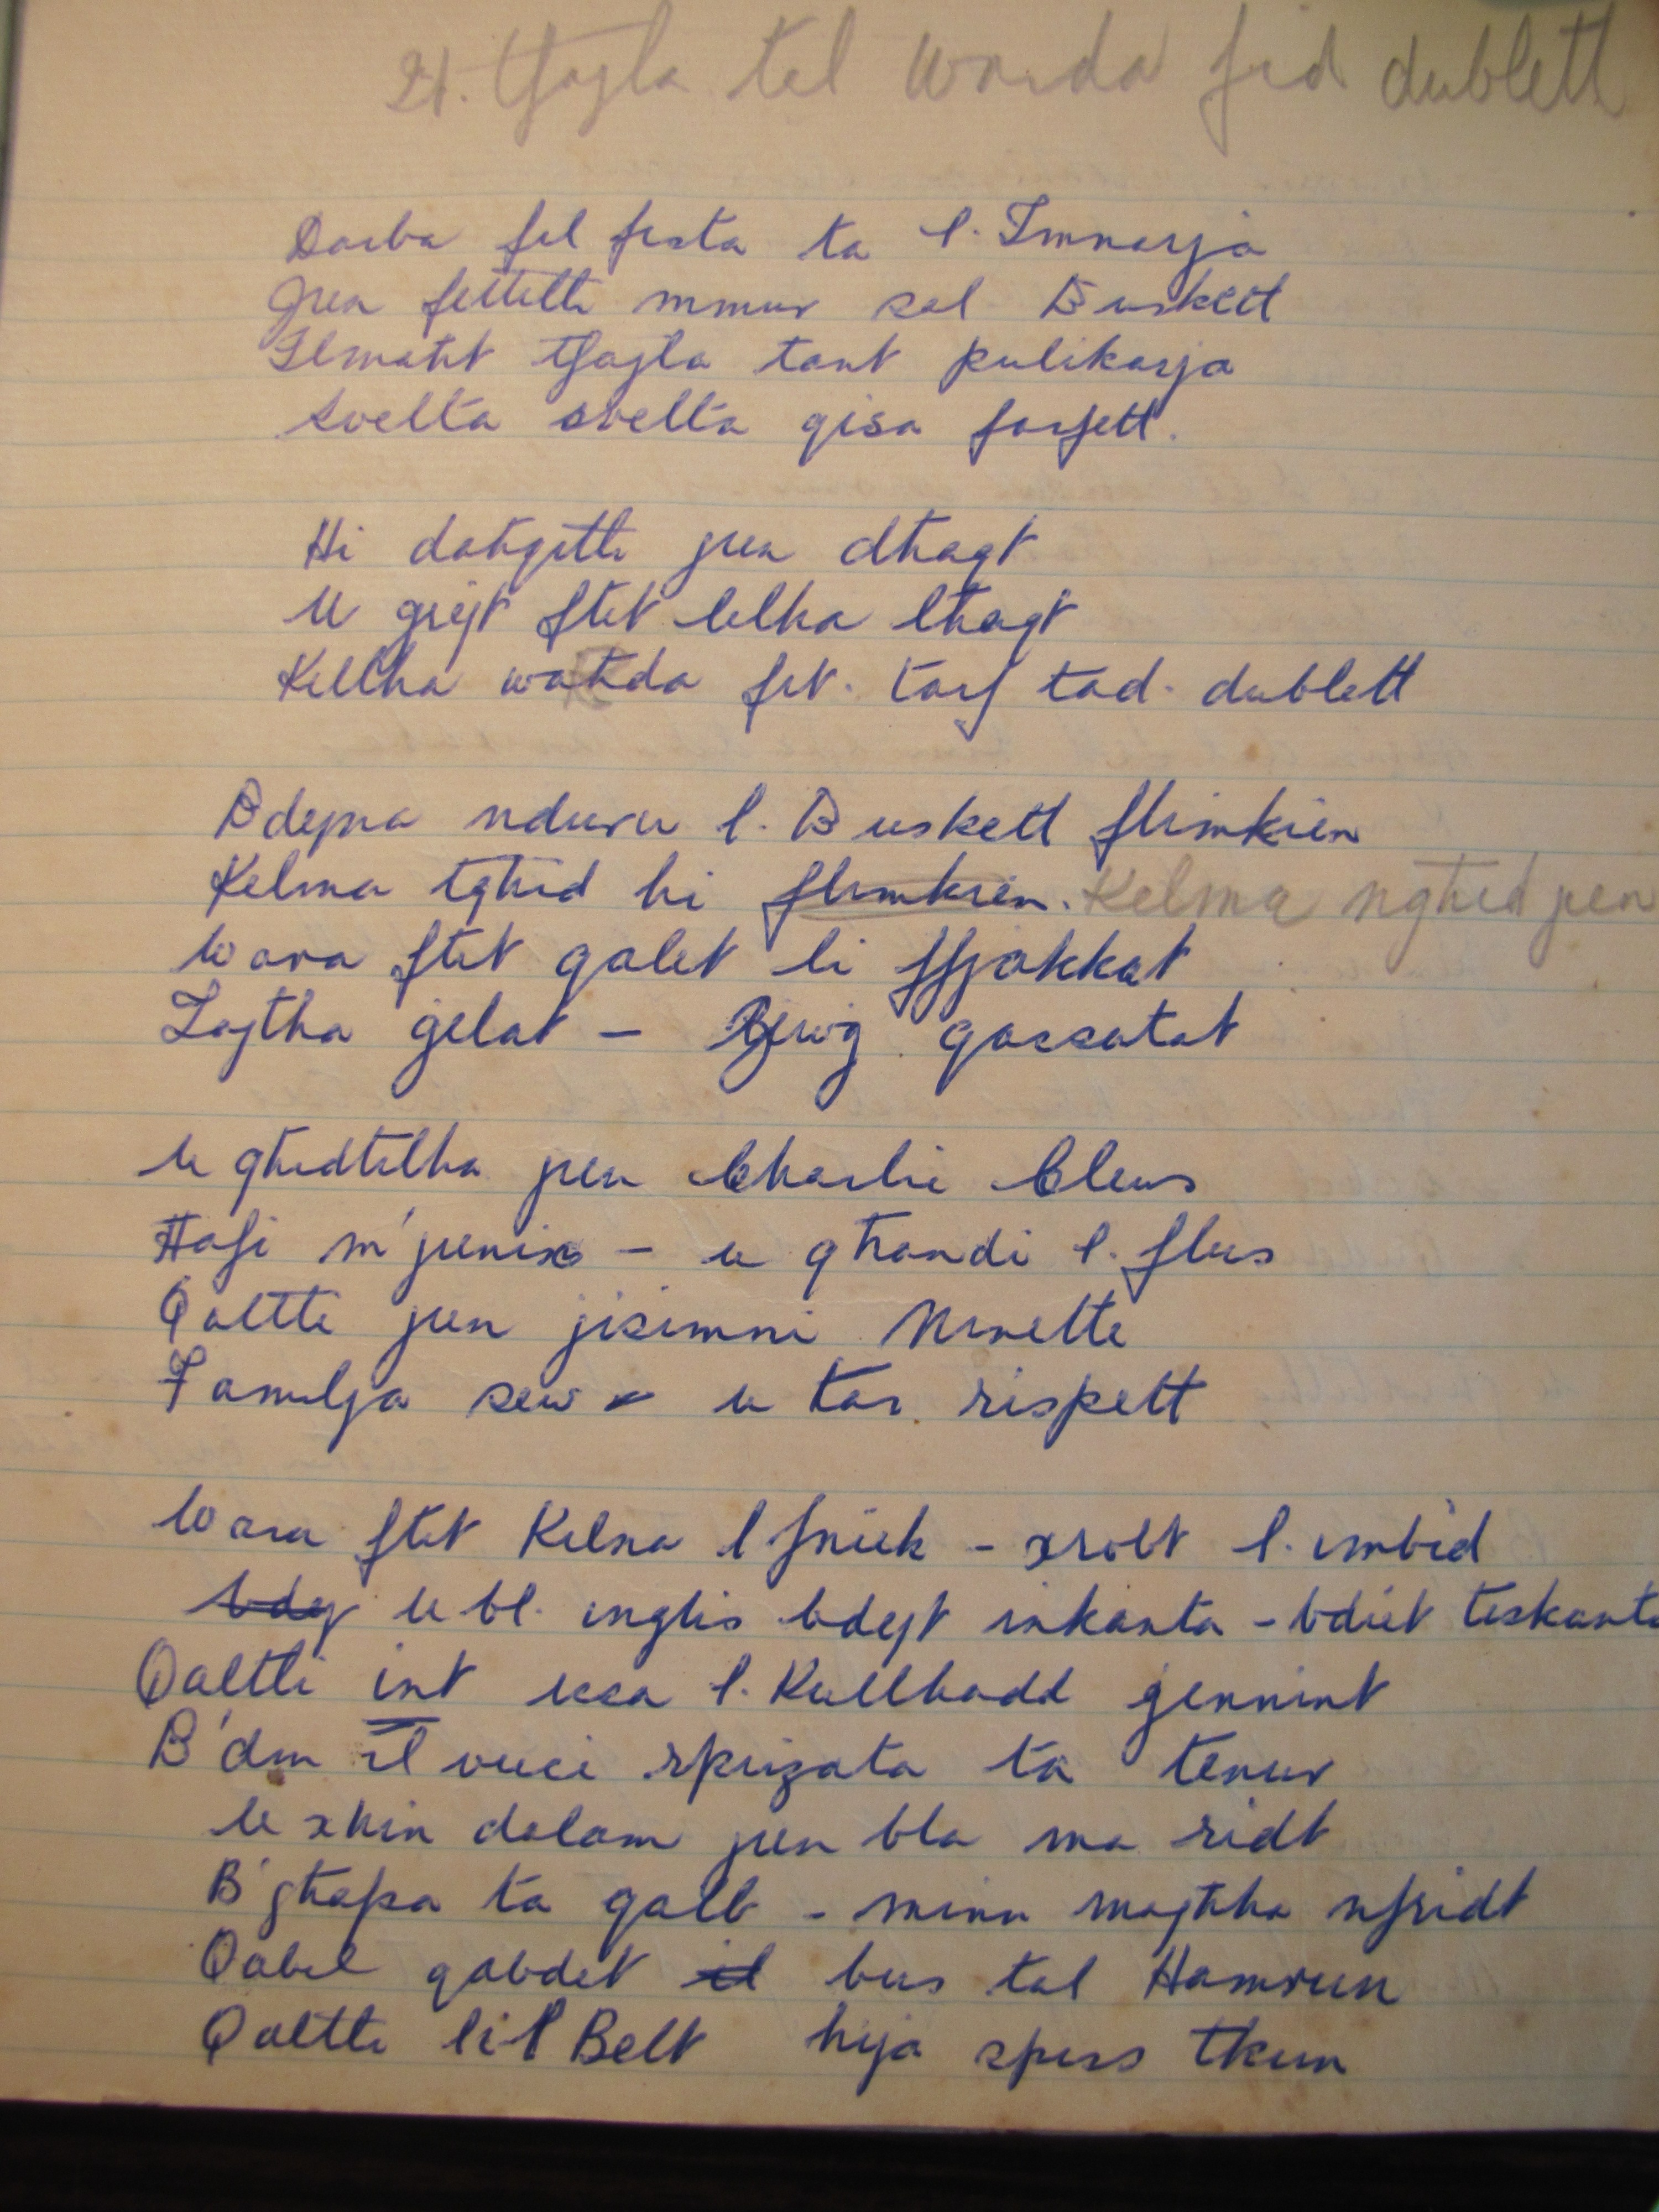 21. Tfajla tal Warda fid dublett
Darba fil festa ta l. Imnarja
Jien fettilli mmur sal Buskett
Ilmaħt tfajla tant pulikarja
Svelta svelta qisa farfett.
Hi daħqitli jien dħaqt
U ġrejt ftit lilha lħaqt
Kellha warda fit. tarf tad. dublett
Bdejna nduru l. Buskett flimkien
Kelma tgħid hi flimkien. Kelma ngħid jien
Wara ftit qalet li ffjakkat
Ġelat – Żewġ qassatat
U għidtilha jien Charlie Clews
Ħafi m'jienix – u għandi l. flus
Qaltli jien jisimni Ninette
Familja sew u tar. rispett
Wara ftit kilna l fniek – xrobt l. imbid
Bdej U bl. inglis bdejt inkanta – bdiet tiskanta
Qaltli int issa l. Kullħadd ġennint
B'din il vuci sprizata ta tenur
U xħin dalam jien bla ma ridt
B'għafsa ta qalb – minn magħha nfridt
Qabel qabdet il bus tal Hamrun
Qaltli li l Belt hija spiss tkun